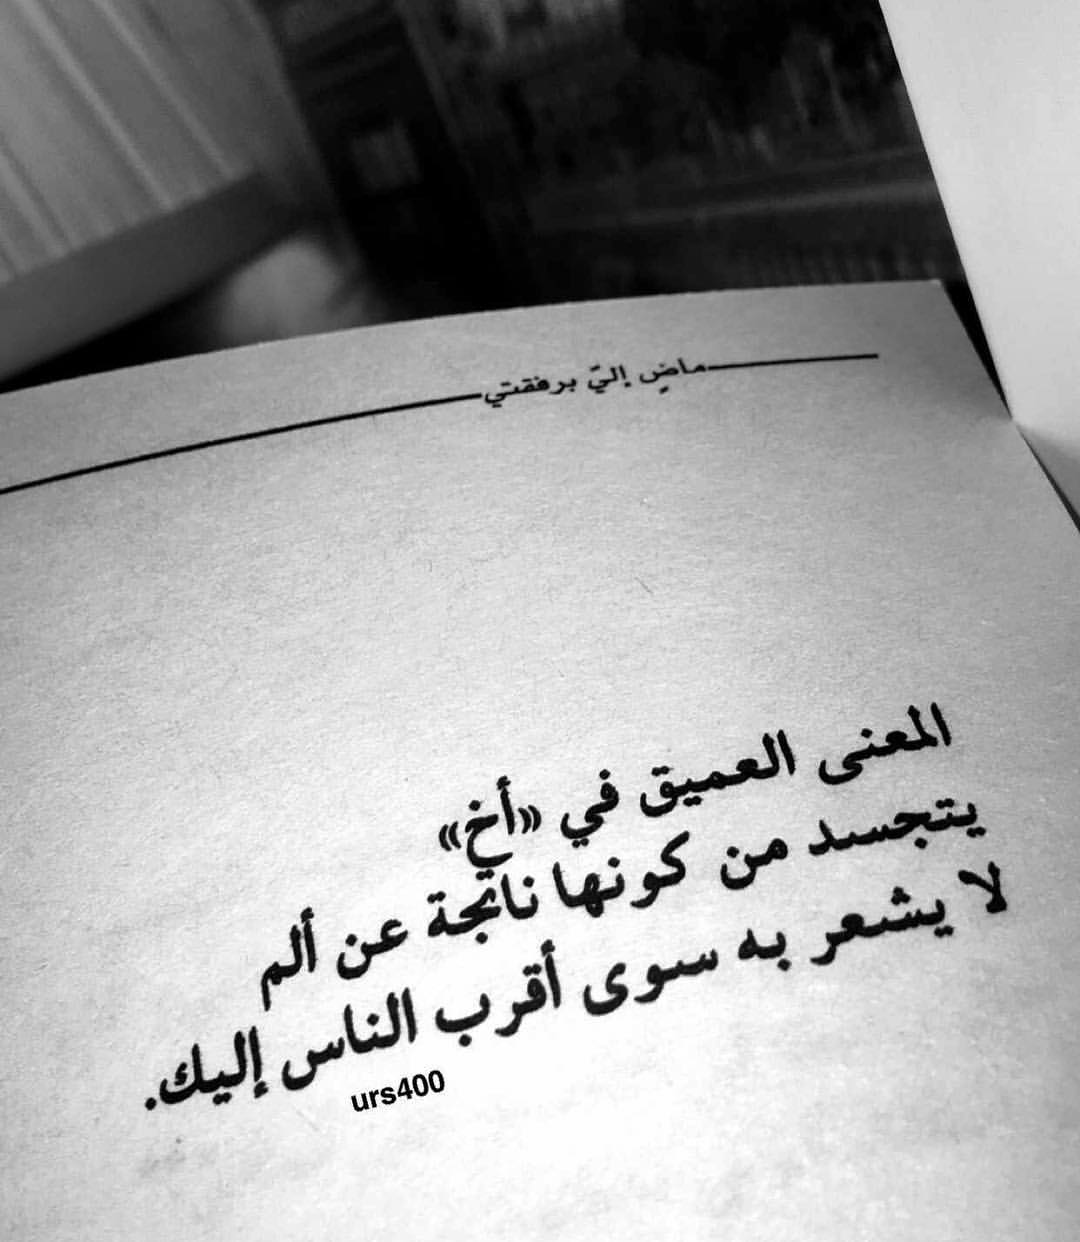 ماضٍ إليّ برفقتي
المعنى العميق في «أخ»
يتجسد من كونها ناتجة عن ألم
لا يشعر به سوى أقرب الناس إليك.
urs400